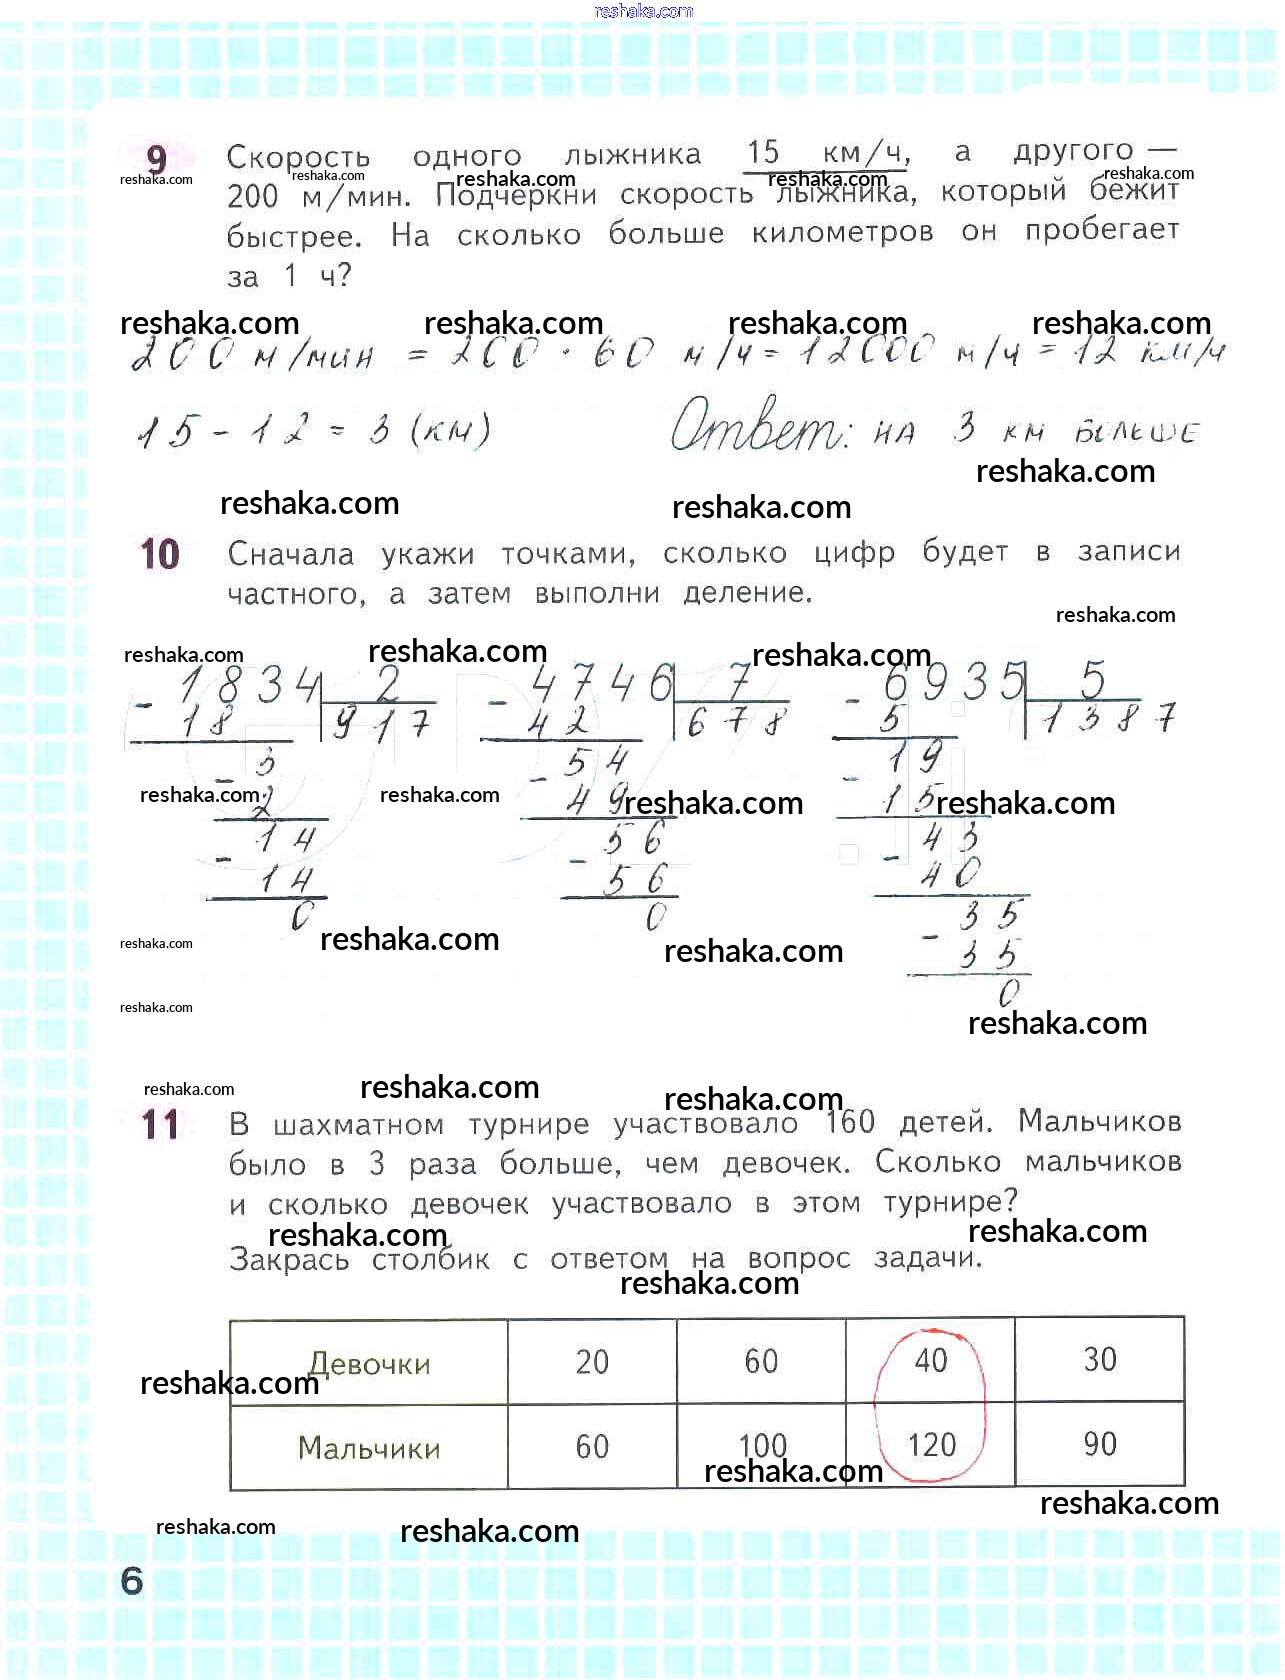 reshaka.com
9 Скорость одного лыжника 15 км/ч, а другого —
reshaka.com reshaka.com reshaka.com reshaka.com reshaka.com
200 м/мин. Подчеркни скорость лыжника, который бежит
быстрее. На сколько больше километров он пробегает
за 1 ч?
reshaka.com reshaka.com reshaka.com reshaka.com
200 м/мин = 200 · 60 м/ч = 12000 м/ч = 12 км/ч
15 - 12 = 3 (км) Ответ: на 3 км больше
reshaka.com
reshaka.com reshaka.com
10 Сначала укажи точками, сколько цифр будет в записи
частного, а затем выполни деление.
reshaka.com
reshaka.com reshaka.com reshaka.com
- 1834 2 - 4746 7 - 6935 5
18 917 42 678 5 1387
- 3 - 54 - 19
2 49 15
reshaka.com reshaka.com reshaka.com reshaka.com
- 14 - 56 - 43
14 56 40
0 0 - 35
reshaka.com reshaka.com reshaka.com
35
0
reshaka.com reshaka.com
reshaka.com reshaka.com reshaka.com
11 В шахматном турнире участвовало 160 детей. Мальчиков
было в 3 раза больше, чем девочек. Сколько мальчиков
и сколько девочек участвовало в этом турнире?
reshaka.com reshaka.com
Закрась столбик с ответом на вопрос задачи.
reshaka.com
Девочки 20 60 40 30
reshaka.com
Мальчики 60 100 120 90
reshaka.com
reshaka.com
reshaka.com reshaka.com
6